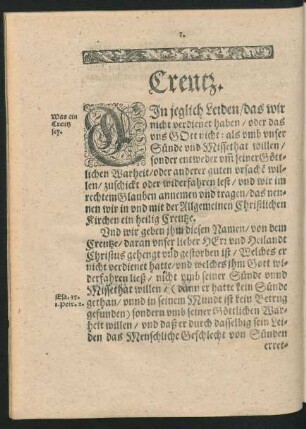 1.
Creutz.
Was ein
Creutz
sey.
EIn jeglich Leiden/das wir
nicht verdienet haben/oder das
vns GOtt nicht: als vmb vnser
Sünde vnd Missethat willen/
sonder entweder vm̃ seiner Gött-
lichen Warheit/oder anderer guten vrsach wil-
len/zuschickt oder widerfahren lest/vnd wir im
rechtem Glauben annemen vnd tragen/das nen-
nen wir in vnd mit der Allgemeinen Christlichen
Kirchen ein heilig Creutze.
Vnd wir geben jhm diesen Namen/von dem
Creutze/daran vnser lieber HErr vnd Heilandt
Christus gehengt vnd gestorben ist/Welches er
nicht verdienet hatte/vnd welches jhm Gott wi-
derfahren ließ/nicht vmb seiner Sünde vnnd
Missethat willen/(dann er hatte kein Sünde
Esa. 53.
gethan/vnnd in seinem Mundt ist kein Betrug
1. Petr. 2.
gefunden) sondern vmb seiner Göttlichen War-
heit willen/vnd daß er durch dasselbig sein Lei-
den das Menschliche Geschlecht von Sünden
erret-